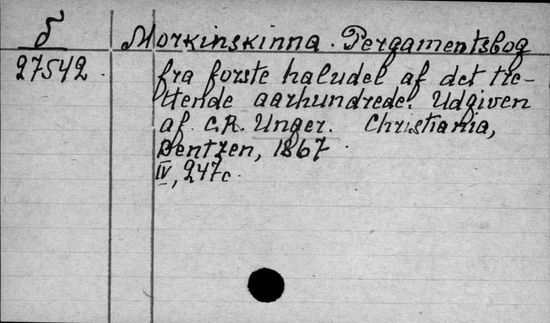 δ
27542.
Morkinskinna. Pergamentsbog
fra forste haludel af det tre-
ttende aarhundrede. Udgiven
af C.R. Unger. Christiania,
Bentzen, 1867.
IV, 247c.